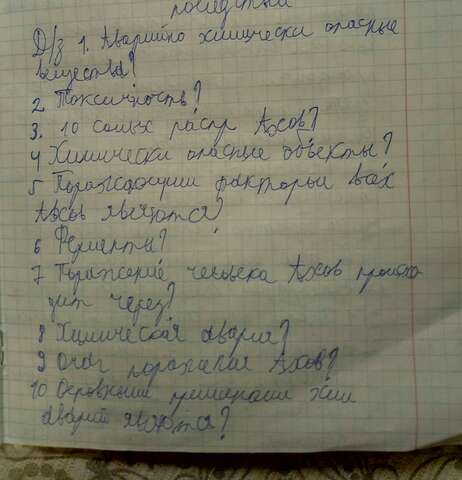 Д/з 1. Аварийно химически опасные
вещества?
2 Токсичность?
3. 10 самых распр Ахов?
4 Химически опасные объекты?
5 Поражающими факторы всех
Ахов являются?
6 Ферменты?
7 Поражение человека Ахов происхо
дит через?
8 Химическая авария?
9 Очаг поражения Ахов?
10 Основными хим
аварий являются?